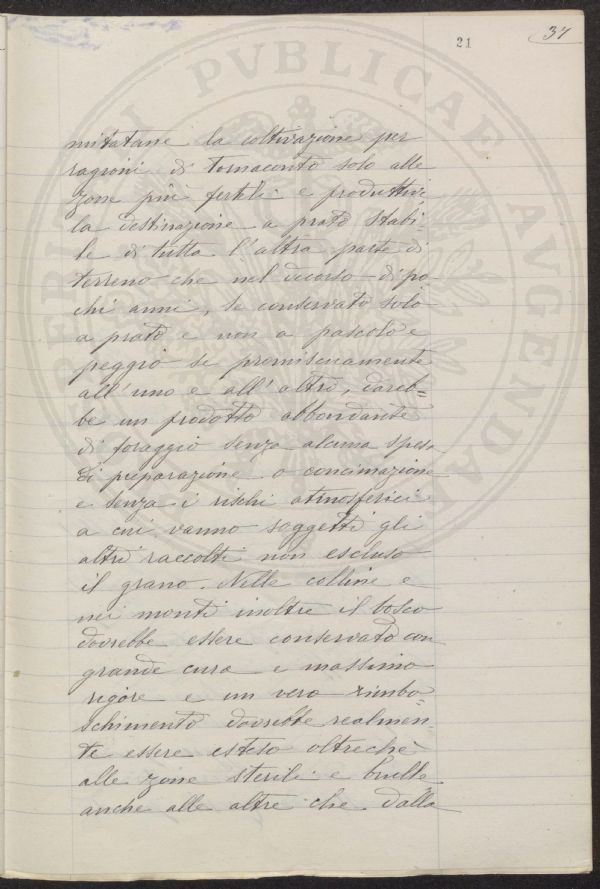 21
37
mitatane la coltivazione per
ragioni di tornaconto solo alle
zone più fertili e produttive
la destinazione a prato stabi-
le di tutta l'altra parte di
terreno che nel decorso di po-
chi anni, se conservato solo
a prato e non a pascolo e
peggio se promiscuamente
all'uno e all'altro, dareb=
be un prodotto abbondante
di foraggio senza alcuna spesa
di preparazione o concimazione
e senza i rischi atmosferici
a cui vanno soggetti gli
altri raccolti non escluso
il grano. Nelle colline e
nei monti inoltre il bosco
dovrebbe essere conservato con
grande cura e massimo
rigore e un vero rimbo-
schimento dovrebbe realmen-
te essere esteso oltrechè
alle zone sterili e brulle
anche alle altre che dalla
PVBLICAE
AVGENDAE